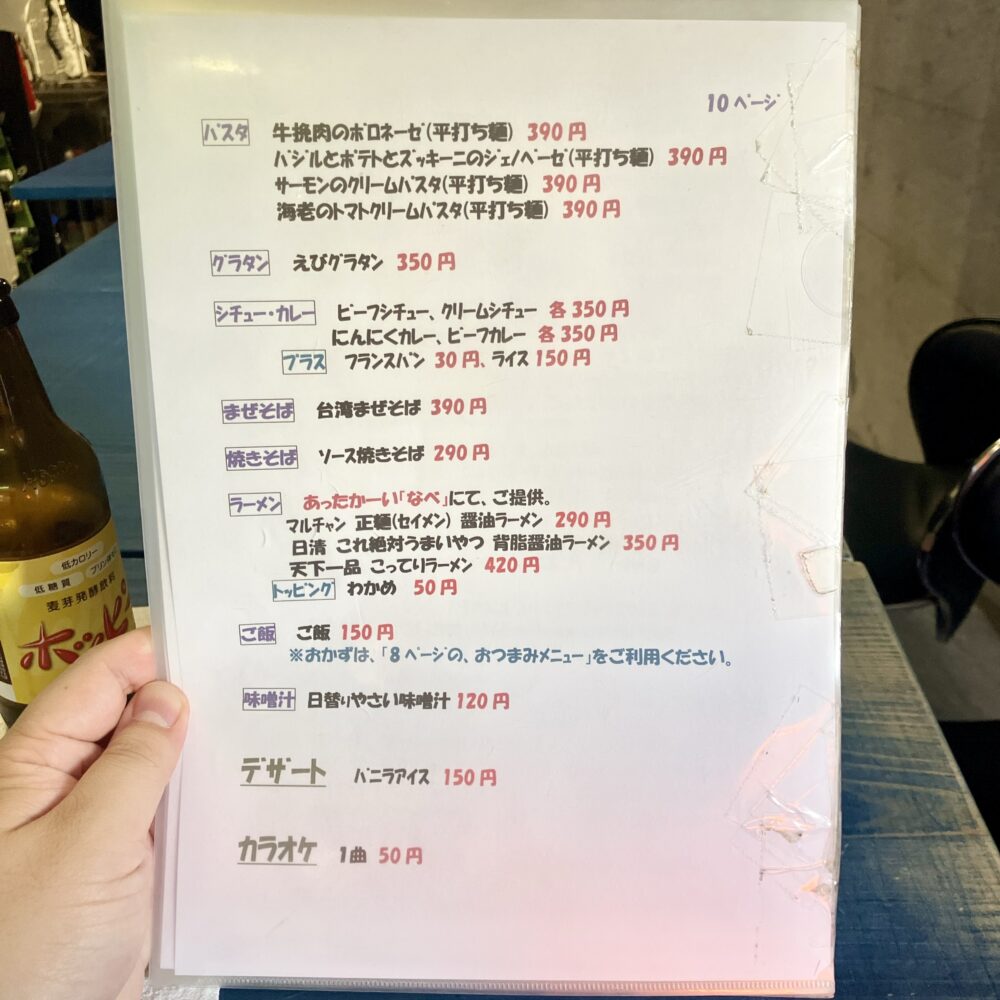 10ページ
パスタ 牛挽肉のボロネーゼ(平打ち麺) 390円
バジルとポテトとズッキーニのジェノベーゼ(平打ち麺) 390円
サーモンのクリームパスタ(平打ち麺) 390円
海老のトマトクリームパスタ(平打ち麺) 390円
グラタン えびグラタン 350円
シチュー・カレー ビーフシチュー、クリームシチュー 各350円
にんにくカレー、ビーフカレー 各350円
プラス フランスパン 30円、ライス 150円
まぜそば 台湾まぜそば 390円
焼きそば ソース焼きそば 290円
ラーメン あったかーい「なべ」にて、ご提供。
マルチャン 正麺(セイメン) 醤油ラーメン 290円
日清 これ絶対うまいやつ 背脂醤油ラーメン 350円
天下一品 こってりラーメン 420円
トッピング わかめ 50円
ご飯 ご飯 150円
※おかずは、「8ページの、おつまみメニュー」をご利用ください。
味噌汁 日替りやさい味噌汁 120円
デザート バニラアイス 150円
カラオケ 1曲 50円
低カロリー
低糖質
プリン体
麦芽発酵飲料
ホッピ